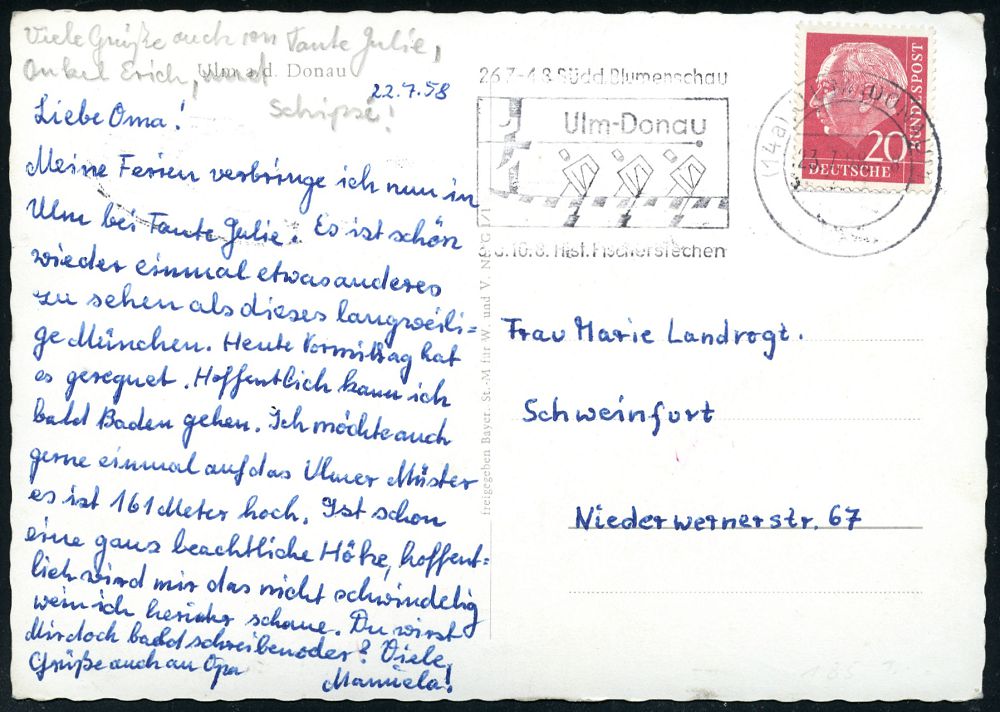 Viele Grüße auch von Tante Julie,
Onkel Erich, und
Schipsi!
Ulm a. d. Donau
22.7.58
Liebe Oma!
Meine Ferien verbringe ich nun in
Ulm bei Tante Julie. Es ist schön
wieder einmal etwas anderes
zu sehen als dieses langweili=
ge München. Heute Vormittag hat
es geregnet. Hoffentlich kann ich
bald Baden gehen. Ich möchte auch
gerne einmal auf das Ulmer Müster
es ist 161 Meter hoch. Ist schon
eine ganz beachtliche Höhe, hoffent=
lich wird mir das nicht schwindelig
wenn ich herunter schaue. Du wirst
Mir doch bald schreiben oder? Viele,
Grüße auch an Opa
Manuela!
freigegeben Bayer. St.-M für W. und V. NR. G
26.7.-4.8. Südd. Blumenschau
Ulm-Donau
10.8. Hist. Fischerstechen
(14a) ULM (DONAU)
23.7.
20
DEUTSCHE
BUNDESPOST
Frau Marie Landvogt.
Schweinfurt
Niederwernerstr. 67